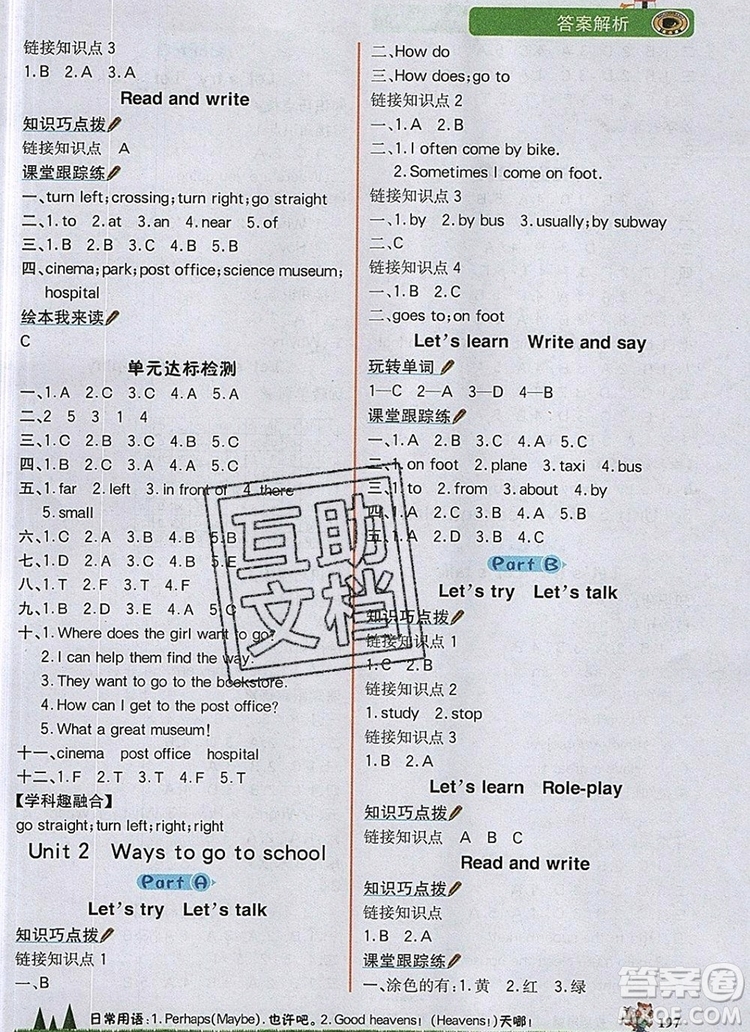 答案解析
链接知识点 3
1.B 2.A 3.A
Read and write
知识巧点拨
链接知识点 A
课堂跟踪练
一、turn left;crossing;turn right;go straight
二、1.to 2.at 3.an 4.near 5.of
三、1.B 2.B 3.A 4.B 5.C
四、cinema;park;post office;science museum;
hospital
绘本我来读
C
单元达标检测
一、1.A 2.C 3.C 4.A 5.A
二、2 5 3 1 4
三、1.C 2.B 3.C 4.B 5.C
四、1.B 2.C 3.A 4.A 5.C
五、1.far 2.left 3.in front of 4.there
5.small
六、1.C 2.B 3.C
七、1.D 2.A 3.B
八、1.T 2.T 3.F
九、1.C 2.B
十、1.Where does the girl want to go?
2.I can help them find the way.
3.They want to go to the bookstore.
4.How can I get to the post office?
5.What a great museum!
十一、cinema post office hospital
十二、1.F 2.T 3.T 4.T 5.T
【学科趣融合】
go straight;turn left;right;right
Unit 2 Ways to go to school
Part A
Let's try Let's talk
知识巧点拨
链接知识点 1
一、B
二、How do
三、How does;go to
链接知识点 2
一、1.A 2.B
二、1.I often come by bike.
2.Sometimes I come on foot.
链接知识点 3
一、1.by 2.by bus 3.usually;by subway
二、C
链接知识点 4
一、1.B 2.C
二、goes to;on foot
Let's learn Write and say
玩转单词
1—C 2—A 3—D 4—B
课堂跟踪练
一、1.A 2.B 3.C 4.A 5.C
二、1.on foot 2.plane 3.taxi 4.bus
三、1.to 2.from 3.about 4.by
四、1.A 2.C 3.C 4.B 5.C
五、1.D 2.A 3.B 4.C
Part B
Let's try Let's talk
知识巧点拨
链接知识点 1
1.C 2.B
链接知识点 2
1.study 2.stop
链接知识点 3
1.B 2.A
Let's learn Role-play
知识巧点拨
链接知识点 A B C
Read and write
知识巧点拨
链接知识点
1.B 2.A
课堂跟踪练
一、涂色的有:1.黄 2.红 3.绿
日常用语:1.Perhaps(Maybe).也许吧。2.Good heavens!(Heavens!)天哪!
互助
文档
答案圈
MXQE.COM